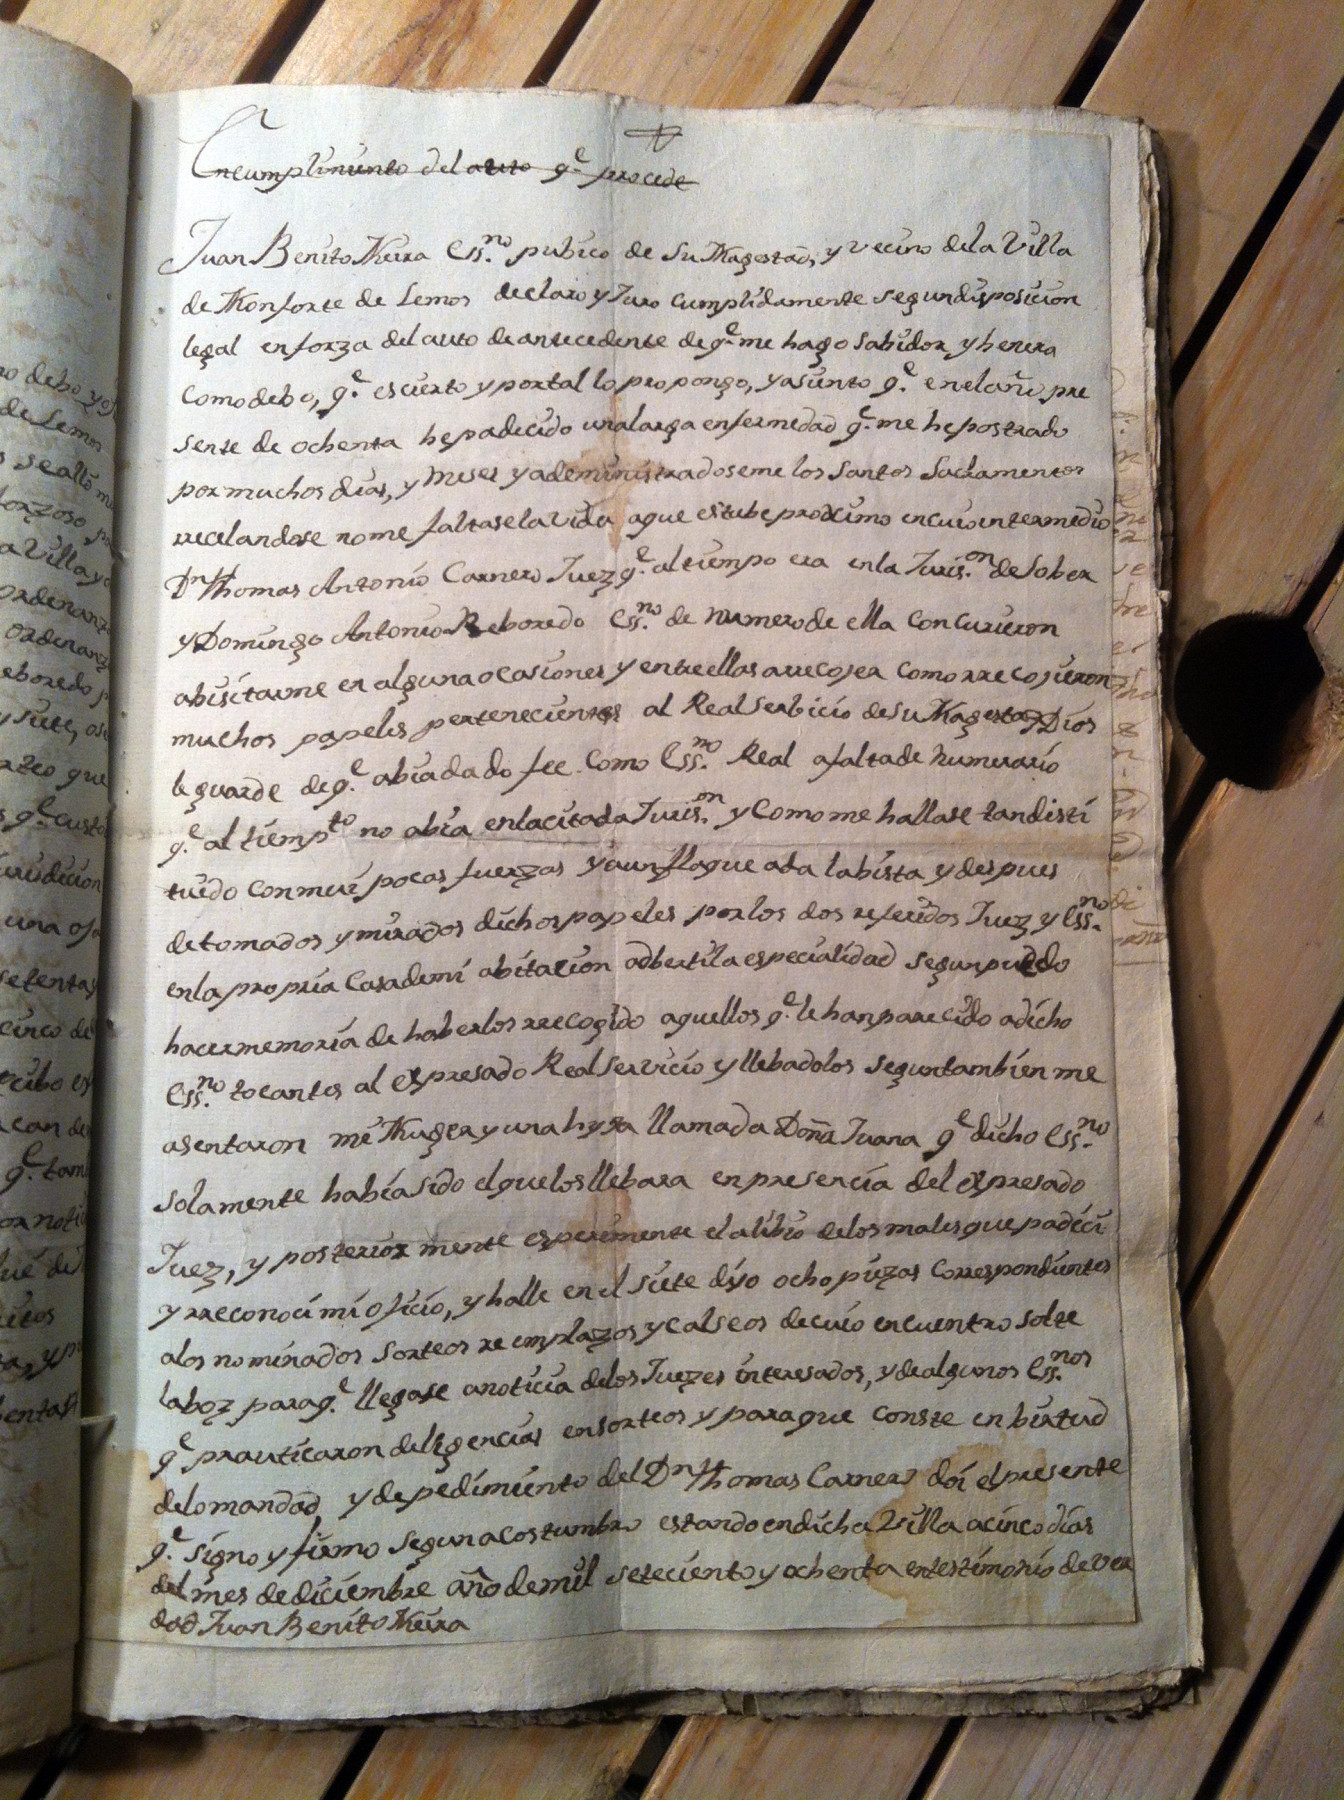 Encumplimiento del auto q.e procede
Juan Benito Neira Ess.no pubico de Su Magestad, y vecino dela Villa
de Monforte de Lemos declaro y Juro Cumplidamente segundisposicion
legal enforza del auto de antecedente de q.e me hago sabidor, y henera
Como debo, q.e es cierto y por tal lo propongo, y asiento q.e enel año pre
sente de ochenta he padecido unalarga enfermedad q.e me he postrado
por muchos dias, y meses y adeministradoseme los Santos Sacramentos
rrecelandose nome faltase la vida aque estube proximo encuio intermedio
Dn Thomas Antonio Carnero Juez q.e al tiempo era enla Juris.on de Sober
y Domingo Antonio Reboredo Ess.no de Numero de ella Concurieron
abisitarme en alguna ocasiones y entre ellas arrecojer como rrecojieron
muchos papeles pertenecientes al Real Serbicio de Su Magestad Dios
le guarde de q.e abia dado fee Como Ess.no Real afalta de Numerario
q.e al tiemp.to no abia enlacitada Juris.on y Como me hallase tan disti
tuido Con mui pocas fuerzas y aun flaque ada la bista y despues
de tomados y mirados dichos papeles por los dos referidos Juez y Ess.no
enla propria Casa demi abitacion adberti la especialidad segun puedo
hacer memoria de haberlos rrecogido aquellos q.e le han parecido a dicho
Ess.no tocantes al expresado Real Servicio y llebadolos segun tambien me
asentaron mi Muger y una hyja llamada Doña Juana q.e dicho Ess.no
solamente habia sido el que los llebara en presencia del expresado
Juez, y posterior mente esperimente el alibio delos males que padeci
y rreconoci mi oficio, y halle en el siete dijo ocho piezas Correspondientes
alos nominados Sorteos reemplazos y calseos de cuio encuentro solte
laboz para q.e llegase anoticia delos Juezes interesados, y de algunos Ess.nos
q.e prauticaron deligencias ensorteos y paraque Conste en birtud
delo mandad, y de pedimiento del Dn Thomas Carnero doi el presente
q.e signo y firmo segun acostumbro estando en dicha Villa acinco dias
del mes de diciembre año de mil setecientoy ochenta entestimonio de ver
dad Juan Benito Neira